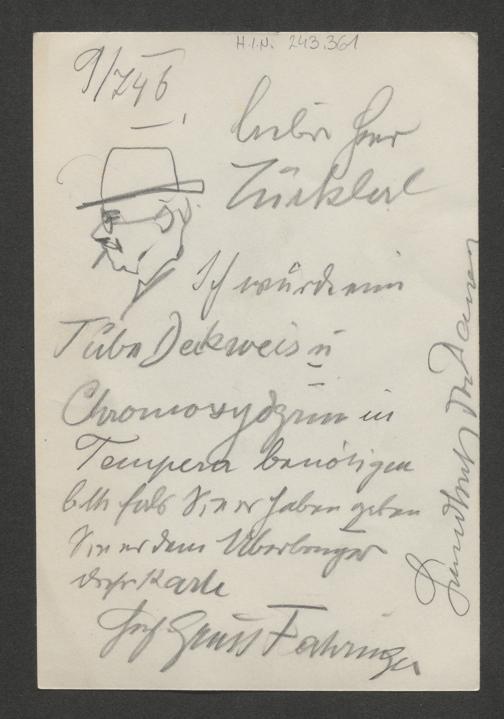 H.I.N. 243.361
9/7 46
Lieber Herr
Zürkterl
Ich würde ein
Tube Deckweis u
Chromoxydgrün in
Tempera benötigen
bitte falls Sie es haben geben
Sie es dem Überbringer
dieser Karte
Hochf Gruß Fahringer
Handkuß der Damen